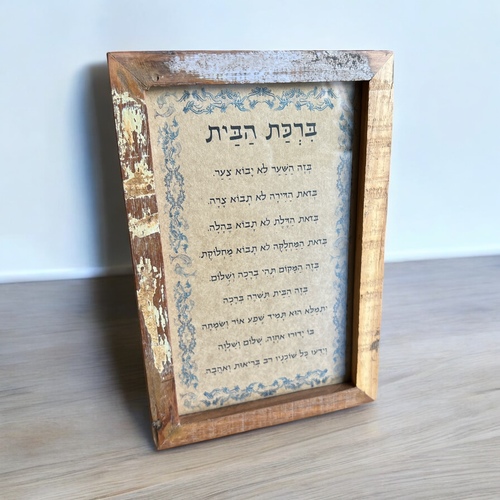 בִּרְכַּת הַבַּיִת
בְּזֶה הַשַּׁעַר לֹא יָבוֹא צַעַר.
בְּזֹאת הַדִּירָה לֹא תָבוֹא צָרָה.
בְּזֹאת הַדֶּלֶת לֹא תָבוֹא בֶּהָלָה.
בְּזֹאת הַמַּחְלָקָה לֹא תָבוֹא מַחְלוֹקֶת.
בְּזֶה הַמָּקוֹם תְּהִי בְּרָכָה וְשָׁלוֹם.
בְּזֶה הַבַּיִת תִּשְׁרֶה בְּרָכָה
יִתְמַלֵּא הוּא תָּמִיד שֶׁפַע אוֹר וְשִׂמְחָה
בּוֹ יָדוּרוּ אַחֲוָה, שָׁלוֹם וְשַׁלְוָה
וְיֵדְעוּ כָּל שׁוֹכְנָיו רֹב בְּרִיאוּת וְאַהֲבָה